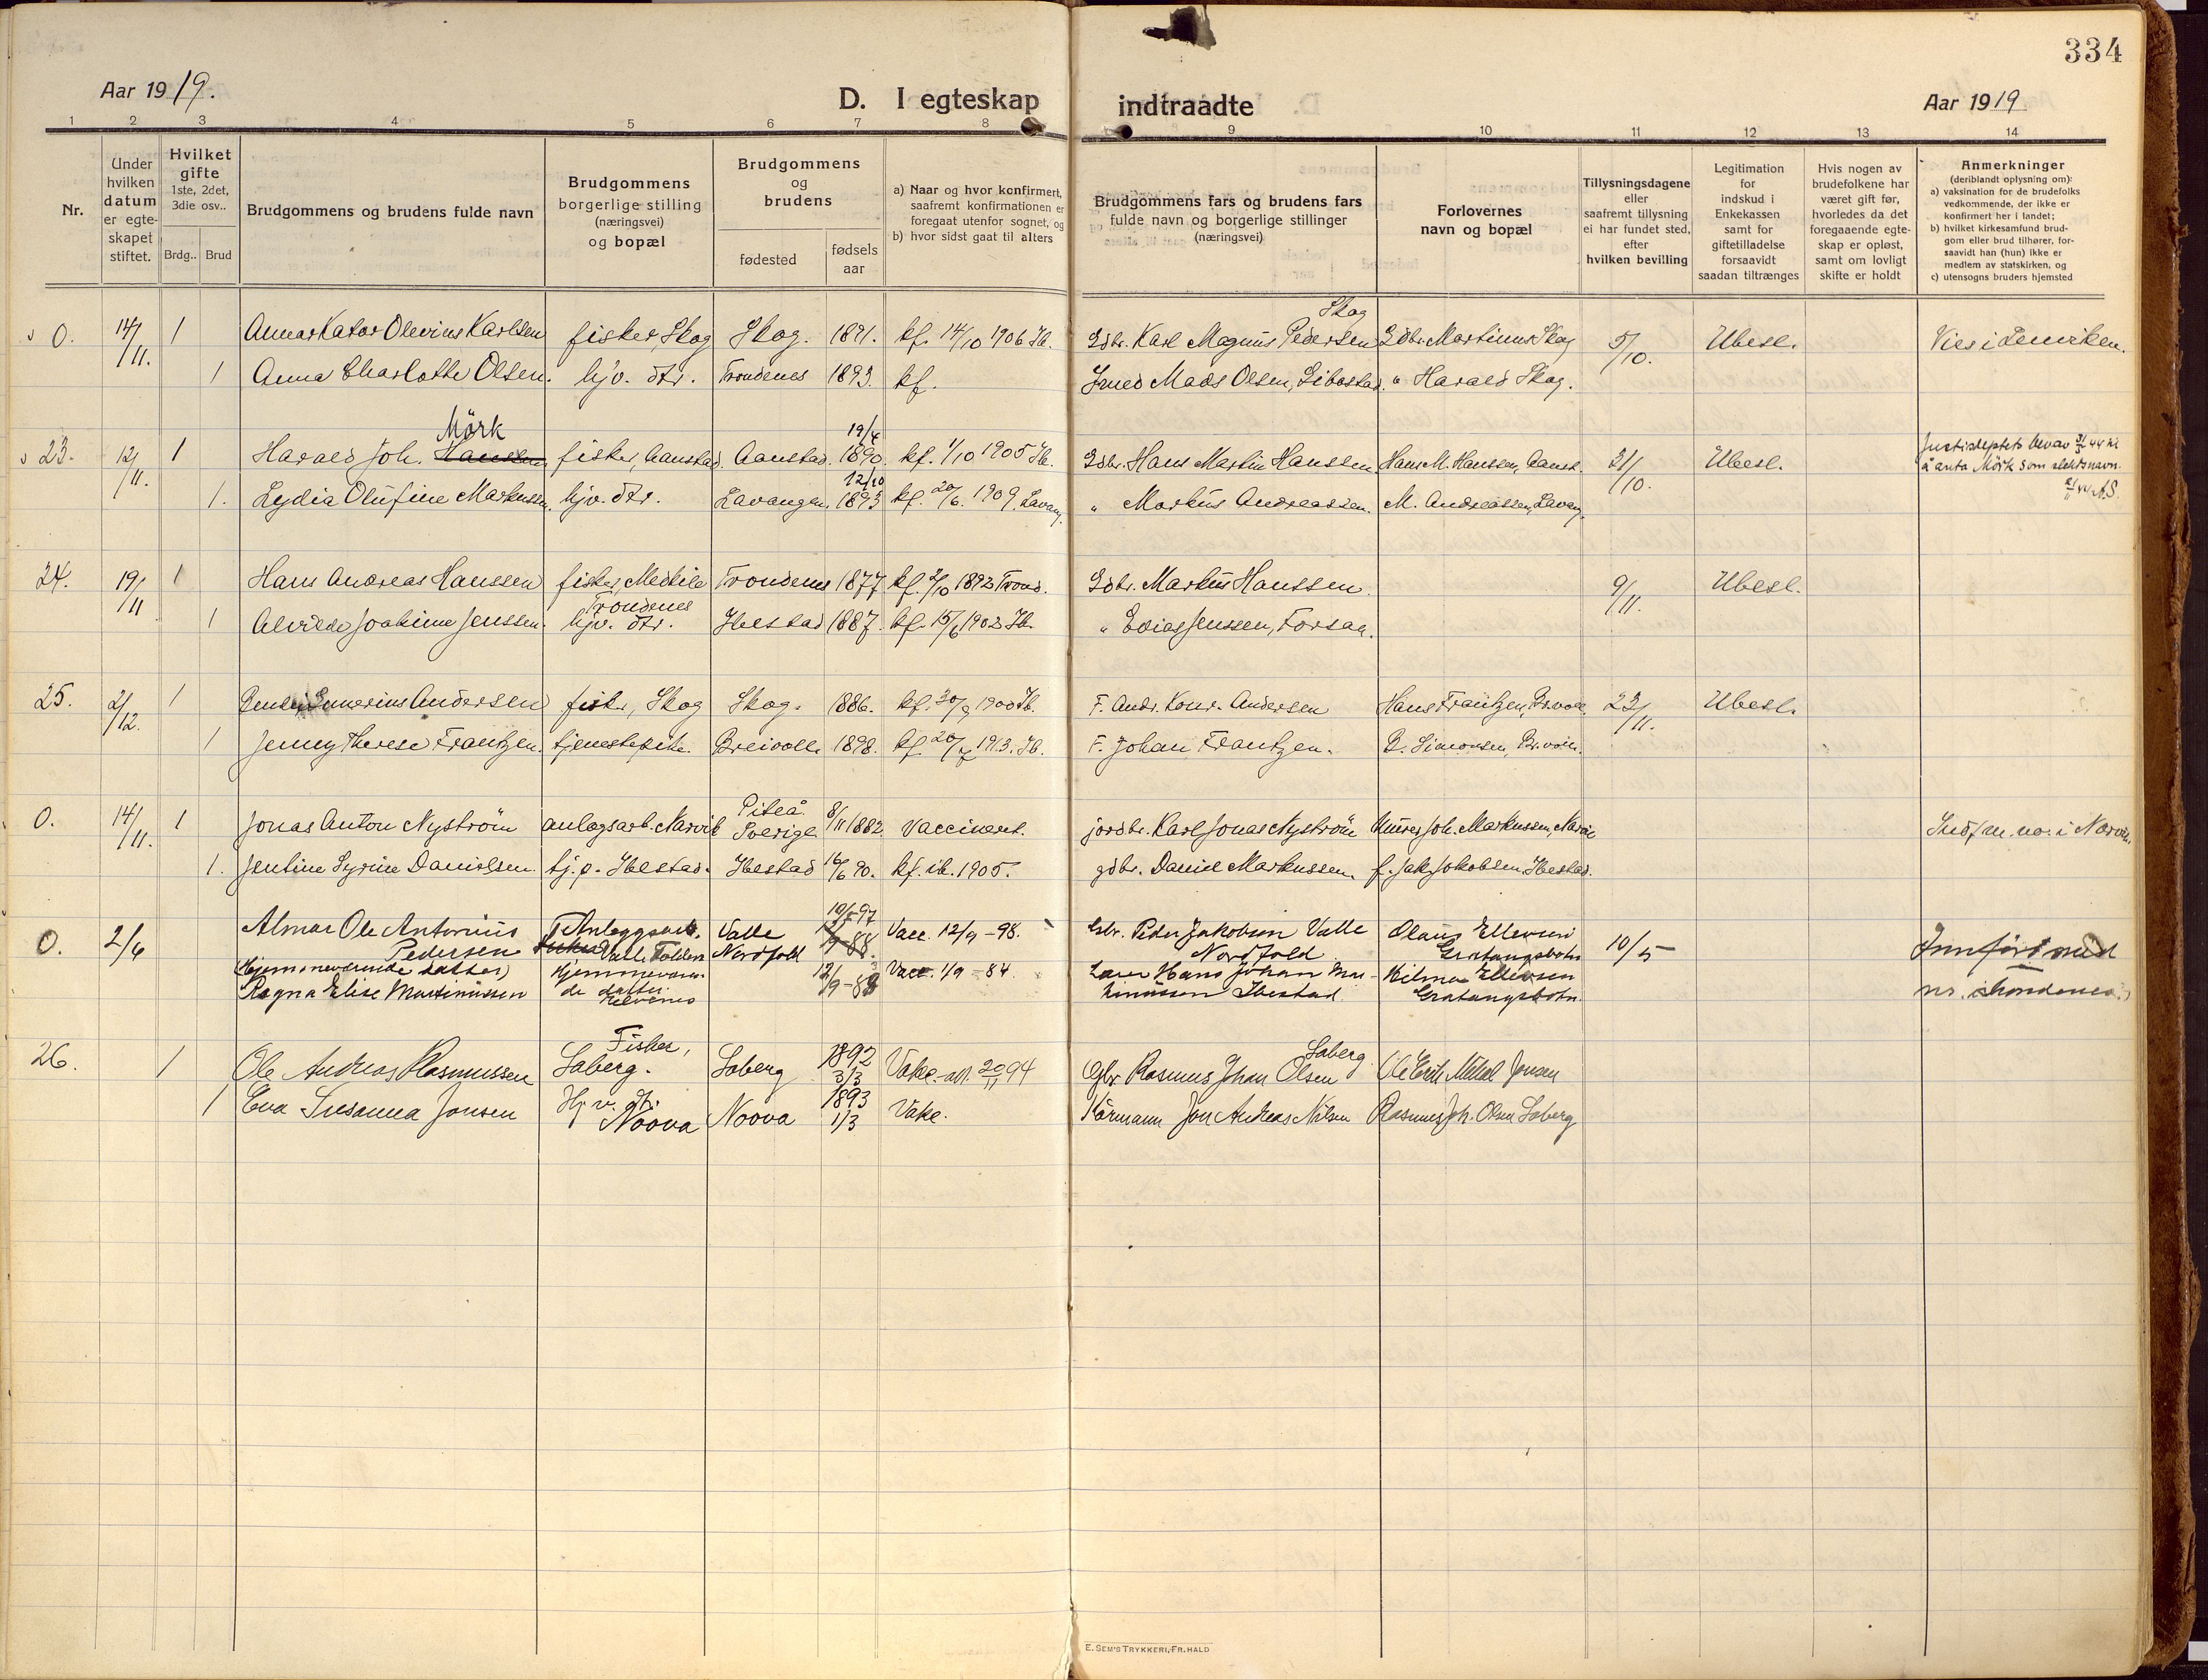 334
Aar 1919.
D. I egteskap indtraadte
Aar 1919
1 2 3 4 5 6 7 8 9 10 11 12 13 14
Nr.
Under hvilken datum er egteskapet stiftet.
Hvilket gifte 1ste, 2det, 3die osv..
Brdg.. Brud
Brudgommens og brudens fulde navn
Brudgommens borgerlige stilling (næringsvei) og bopæl
Brudgommens og brudens
fødested
fødsels aar
a) Naar og hvor konfirmert, saafremt konfirmationen er foregaat utenfor sognet, og
b) hvor sidst gaat til alters
Brudgommens fars og brudens fars fulde navn og borgerlige stillinger (næringsvei)
Forlovernes navn og bopæl
Tillysningsdagene eller saafremt tillysning ei har fundet sted, efter hvilken bevilling
Legitimation for indskud i Enkekassen samt for giftetilladelse forsaavidt saadan tiltrænges
Hvis nogen av brudefolkene har været gift før, hvorledes da det foregaaende egteskap er opløst, samt om lovligt skifte er holdt
Anmerkninger (deriblandt oplysning om):
a) vaksination for de brudefolks vedkommende, der ikke er konfirmert her i landet;
b) hvilket kirkesamfund brudgom eller brud tilhører, forsaavidt han (hun) ikke er medlem av statskirken, og
c) utensogns bruders hjemsted
0. 14/11. 1 Olevius Karlsen fisker, Skog Skog. 1891. kf. 14/10 1906 Ib. Gdbr. Karl Magnus Pedersen Skog Gdbr. Martinus Skog 5/10. Ubesl. Vies i
1 Anna Charlotte Olsen. hjv. dtr. Trondenes 1893. kf. Mads Olsen, Gibostad. " Harald Skog.
23. 12/11. 1 Harald Joh. Hanssen Mörk fisker, Aanstad. Aanstad. 19/4 1890. kf. 1/10 1905 Ib. Gdbr. Hans Martin Hanssen Hans M. Hanssen, Aanst. 31/10. Ubesl. å anta Mörk som slektsnavn.
1. Lydia Olufine Markussen. hjv. dtr. Lavangen. 12/10 1893 kf. 20/6. 1909. Lavang. " Markus Andreassen. M. Andreassen, Lavang.
24. 19/11 1 Hans Andreas Hanssen fisker, Medkile Trondenes Trondenes 1877 kf. 2/10 1892 Trond. Gdbr. Markus Hanssen. 9/11. Ubesl.
1 Alvilde Joakime Jenssen. hjv. dtr. Ibestad 1887. kf. 15/6 1902 Ib. " Edias Jenssen, Forsaa.
25. 2/12. 1 Andersen fisker, Skog Skog. 1886. kf. 30/9 1900 Ib. F. Andr. Konr. Andersen Hans Frantzen, Br.voll. 23/11. Ubesl.
1 Jenny Therese Frantzen. tjenestepike. Breivoll. 1898. kf. 20/7 1913. Ib. F. Johan Frantzen. B. Simonsen, Br.voll.
0. 14/11. 1 Jonas Anton Nyström anlægsarb. Narvik Piteå Sverige 8/11 1882 Vaccinert. jordbr. Karl Jonas Nyström Joh. Markussen, Narvik
1. Jentine Syrine Danielsen. tj.p. Ibestad. Ibestad 16/6 90. kf. ib. 1905. gdbr. Daniel Markussen. f. Jak. Jakobsen, Ibestad.
0. 2/6 Almar Ole Antonius Pedersen Anleggsarb. Valle, Folden Valle Nordfold 10/5-97 Vacc. 12/9 - 98. Gbr. Peder Jakobsen Valle Nordfold Olaus Ellevsen Gratangsbotn 10/5 Innført med nr. i Trondenes
(Hjemmeværende datter) Ragna Elise Martinussen Hjemmeværende datter Elvenes 12/9-89 Vacc. 1/9 - 84. Hans Johan Martinussen Ibestad Hilma Ellevsen Gratangsbotn
26. 1 Ole Andreas Rasmussen Fisker, Soberg. Soberg 1892 3/3 Vakc. att. 20/11 94 Gbr. Rasmus Johan Olsen Soberg Ole Erik Mikal Jonsen
1 Eva Susanna Jonsen Hj. v. dtr. Noova Noova 1893 1/3 Vakc. Kårmann Jon Andreas Nilsen Rasmus Joh. Olsen Soberg
E. SEM'S TRYKKERI, FR.HALD